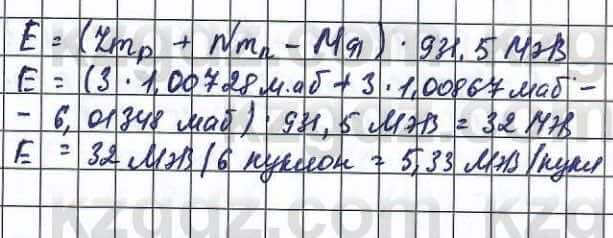 E = (Zmp + Nmn - Mя) · 931,5 МэВ
E = (3 · 1,00728 м.аб + 3 · 1,00867 маб -
- 6,01348 маб) · 931,5 МэВ = 32 МэВ
E = 32 МэВ / 6 нуклон = 5,33 МэВ/нукл